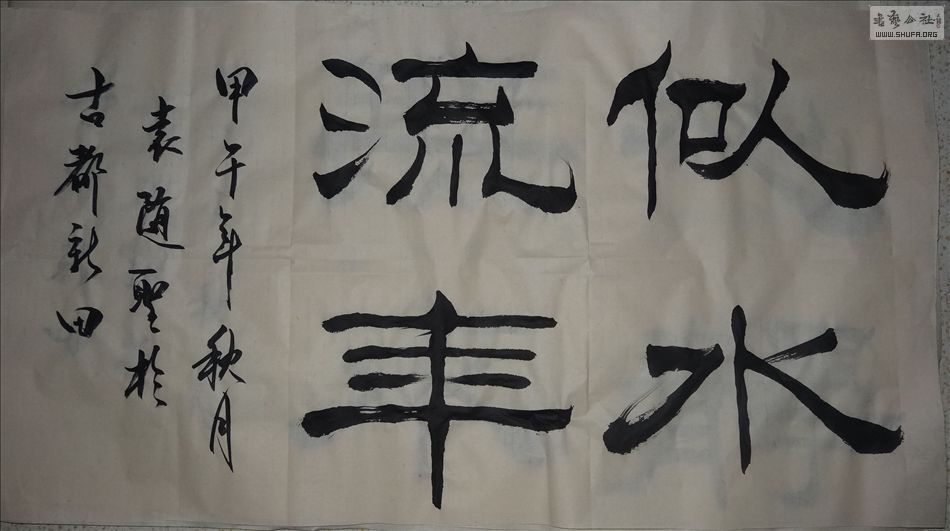 似水
流年
甲午年秋月
袁随聖於
古都新田
書艺公社
WWW.SHUFA.ORG